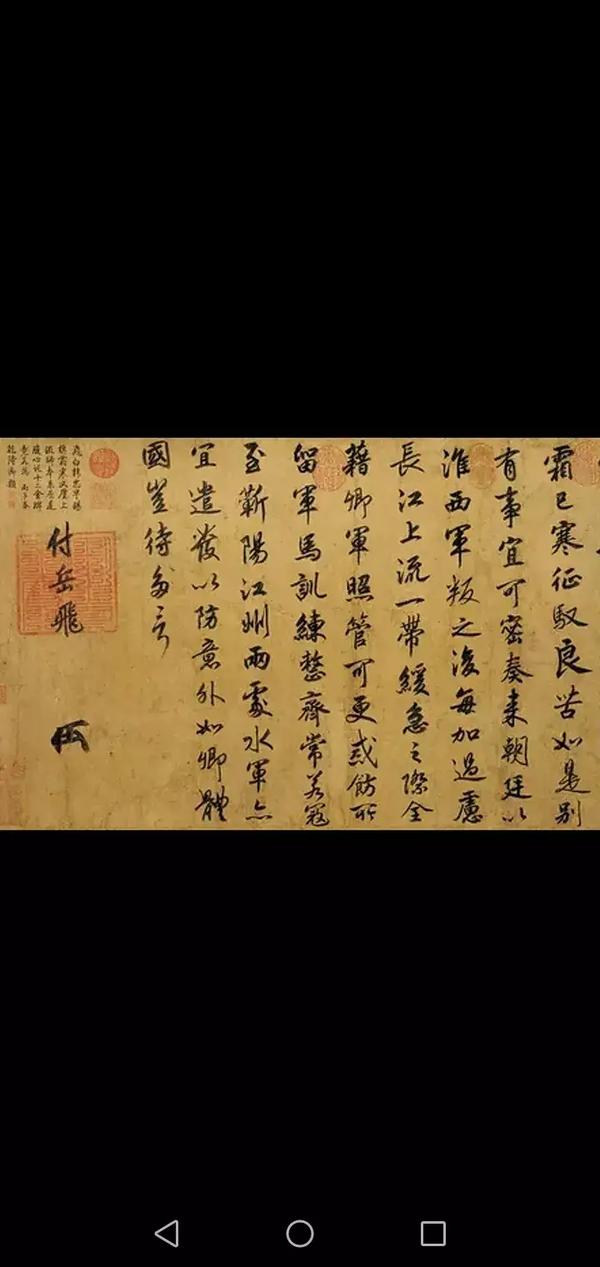 霜已寒征馭良苦如是別
有事宜可密奏来朝廷以
淮西軍叛之後每加過慮
長江上流一帶緩急之際全
藉卿軍照管可更戒飭所
留軍馬訓練整齊常若寇
至蘄陽江州兩處水軍亦
宜遣發以防意外如卿體
國豈待多言
付岳飛